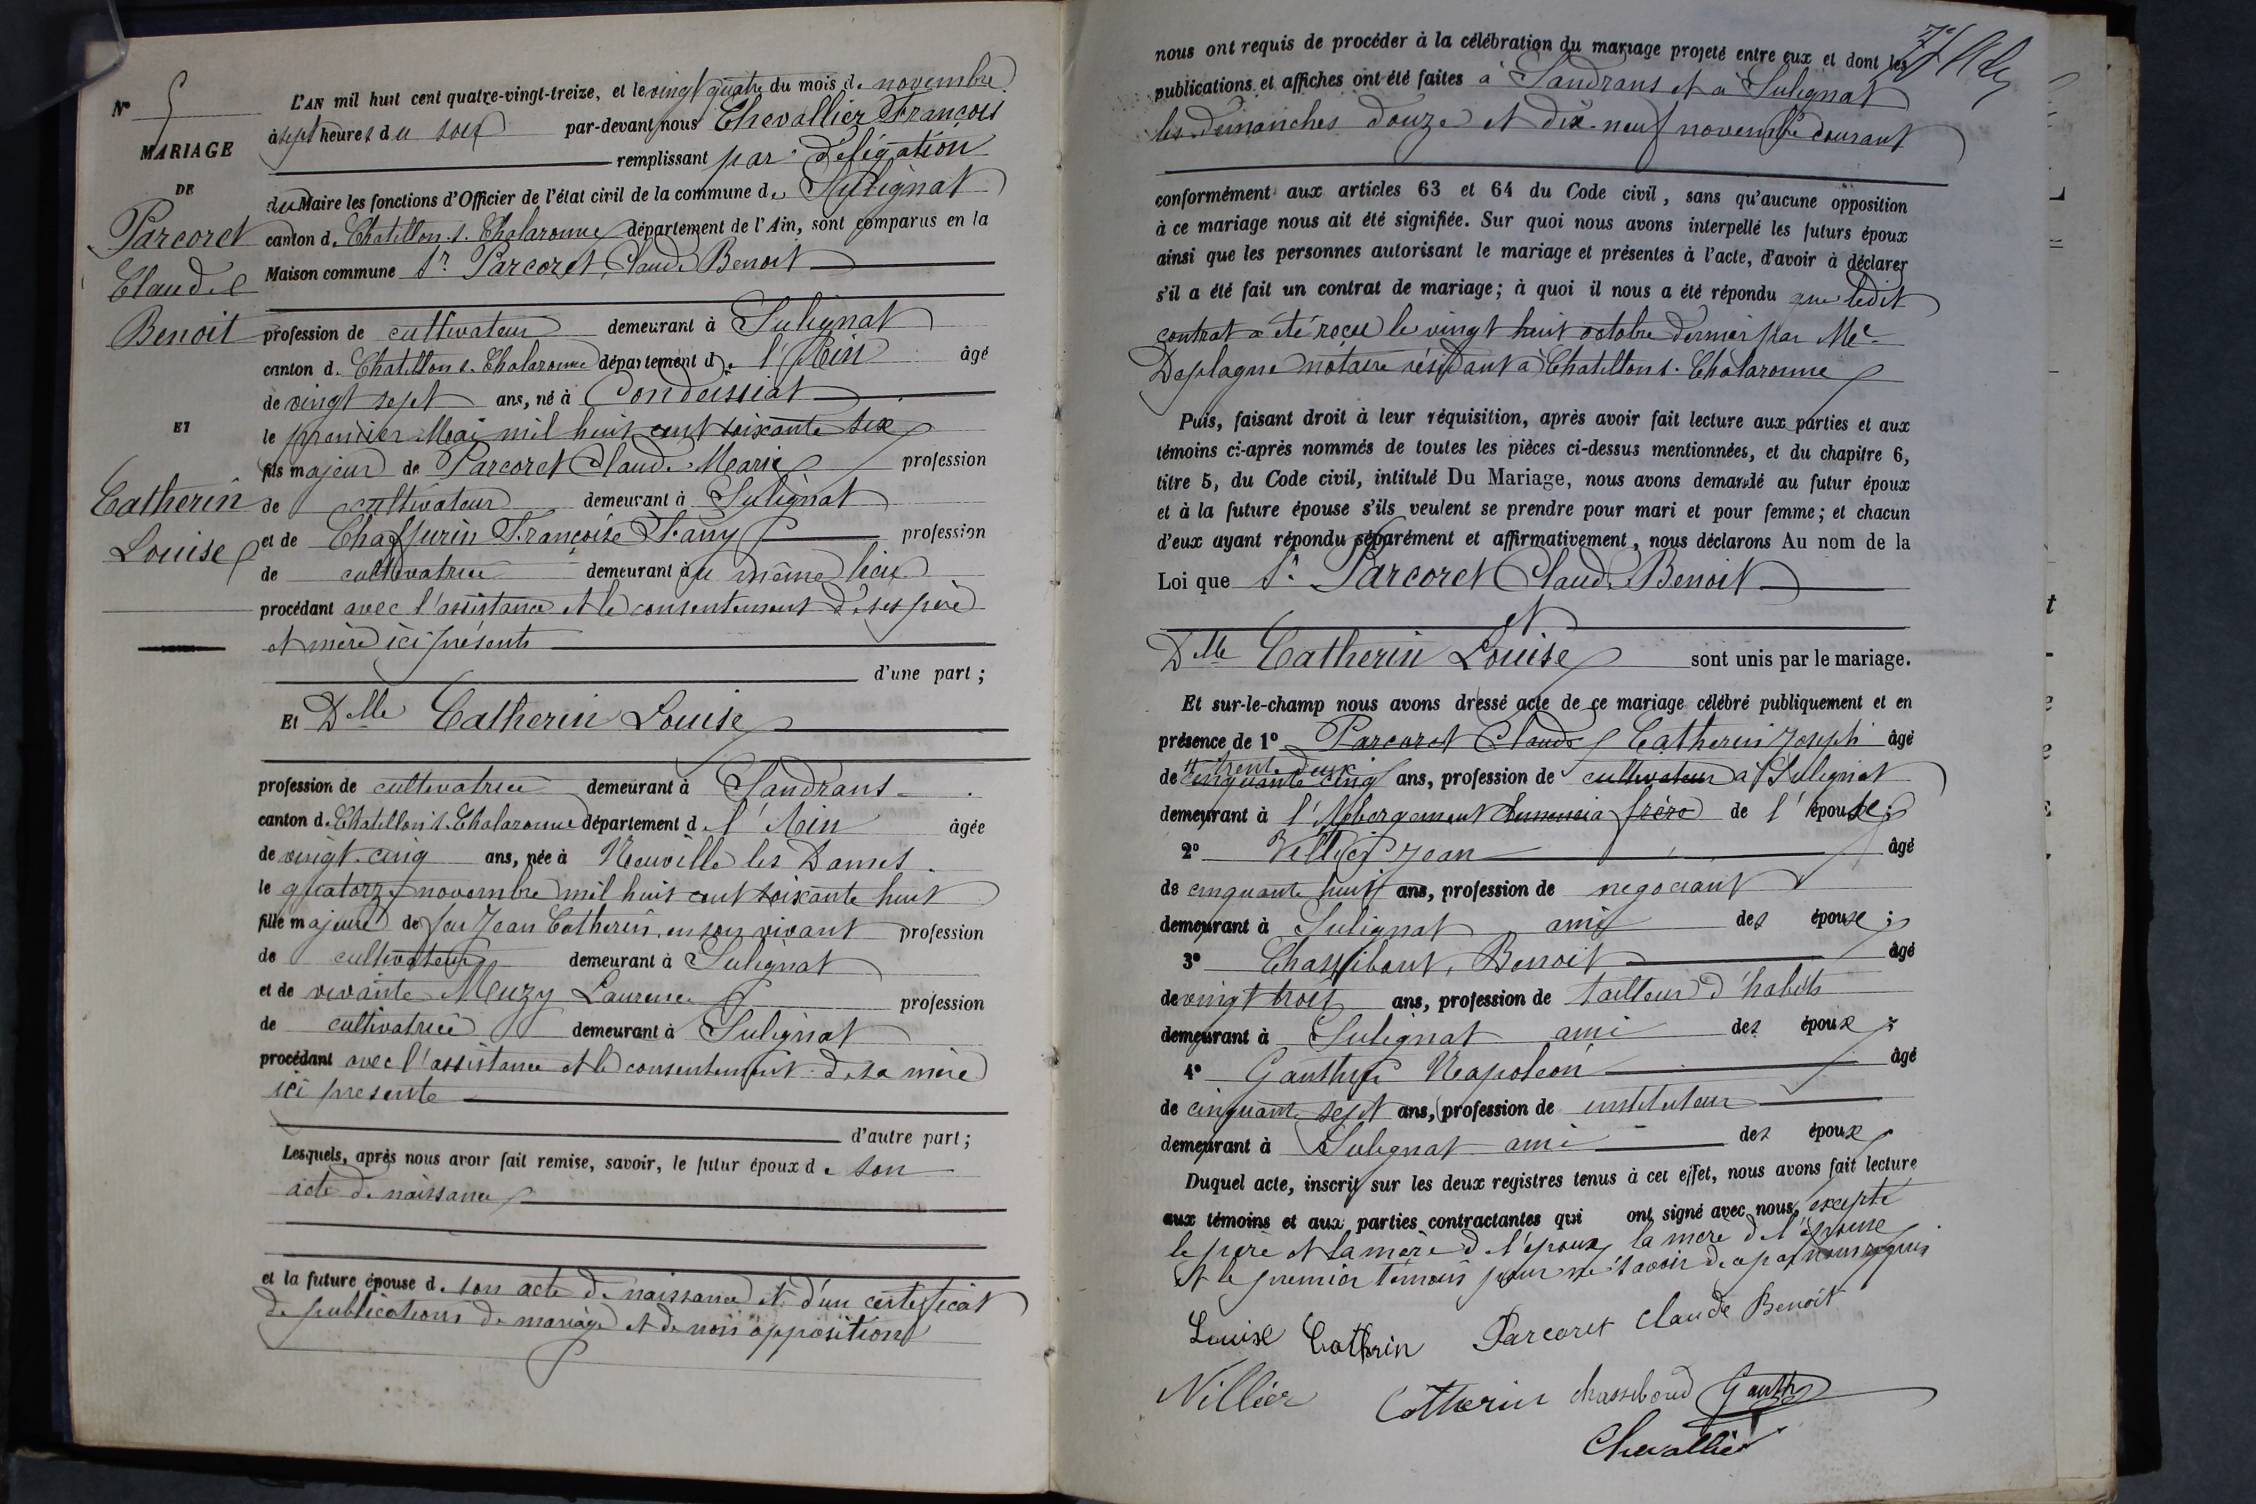 N° 5
MARIAGE
DE
Parcoret
Claude
Benoit
ET
Catherin
Louise
L'AN mil huit cent quatre-vingt-treize, et le vingt quatre du mois de novembre
à sept heures du soir par-devant nous Chevallier François
remplissant par délégation
du Maire les fonctions d'Officier de l'état civil de la commune de Sulignat
canton de Chatillon s. Chalaronne département de l'Ain, sont comparus en la
Maison commune Sr Parcoret Claude Benoit
profession de cultivateur demeurant à Sulignat
canton de Chatillon s. Chalaronne département de l'Ain âgé
de vingt sept ans, né à Condeissiat
le premier Mai mil huit cent soixante six
fils majeur de Parcoret Claude Marie profession
de cultivateur demeurant à Sulignat
et de Chaffurin Françoise Fany profession
de cultivatrice demeurant au même lieu
procédant avec l'assistance et le consentement de ses père
et mère ici présents
d'une part;
Et Delle Catherin Louise
profession de cultivatrice demeurant à Sandrans
canton de Chatillon s. Chalaronne département de l'Ain âgée
de vingt-cinq ans, née à Neuville les Dames
le quatorze novembre mil huit cent soixante huit
fille majeure de feu Jean Catherin, en son vivant profession
de cultivateur demeurant à Sulignat
et de vivante Muzy Laurence profession
de cultivatrice demeurant à Sulignat
procédant avec l'assistance et le consentement de sa mère
ici présente
d'autre part;
Lesquels, après nous avoir fait remise, savoir, le futur époux de son
acte de naissance
et la future épouse de son acte de naissance et d'un certificat
de publications de mariage et de non opposition
nous ont requis de procéder à la célébration du mariage projeté entre eux et dont les
publications et affiches ont été faites à Sandrans et à Sulignat
les dimanches douze et dix-neuf novembre courant
conformément aux articles 63 et 64 du Code civil, sans qu'aucune opposition
à ce mariage nous ait été signifiée. Sur quoi nous avons interpellé les futurs époux
ainsi que les personnes autorisant le mariage et présentes à l'acte, d'avoir à déclarer
s'il a été fait un contrat de mariage; à quoi il nous a été répondu que ledit
contrat a été reçu le vingt huit octobre dernier par Me
Daplagne notaire résidant à Chatillon s. Chalaronne
Puis, faisant droit à leur réquisition, après avoir fait lecture aux parties et aux
témoins ci-après nommés de toutes les pièces ci-dessus mentionnées, et du chapitre 6,
titre 5, du Code civil, intitulé Du Mariage, nous avons demandé au futur époux
et à la future épouse s'ils veulent se prendre pour mari et pour femme; et chacun
d'eux ayant répondu séparément et affirmativement, nous déclarons Au nom de la
Loi que Sr Parcoret Claude Benoit
et
Delle Catherin Louise sont unis par le mariage.
Et sur-le-champ nous avons dressé acte de ce mariage célébré publiquement et en
présence de 1° Parcoret Claude Catherin Joseph âgé
trente deux
de cinquante cinq ans, profession de cultivateur à Sulignat
demeurant à l'Abergement frère de l'épouse;
2° Villier Jean âgé
de cinquante huit ans, profession de negociant
demeurant à Sulignat ami des épouse;
3° Chassibout, Benoit âgé
de vingt trois ans, profession de tailleur d'habits
demeurant à Sulignat ami des époux;
4° Gauthier Napoléon âgé
de cinquante sept ans, profession de instituteur
demeurant à Sulignat ami des époux.
Duquel acte, inscrit sur les deux registres tenus à cet effet, nous avons fait lecture
aux témoins et aux parties contractantes qui ont signé avec nous, excepté
le père et la mère de l'époux, la mère de l'épouse
et le premier témoin pour ne savoir de ce par nous requis
Louise Catherin Parcoret Claude Benoit
Villier Catherin Chassiboud Gauthier
Chevallier